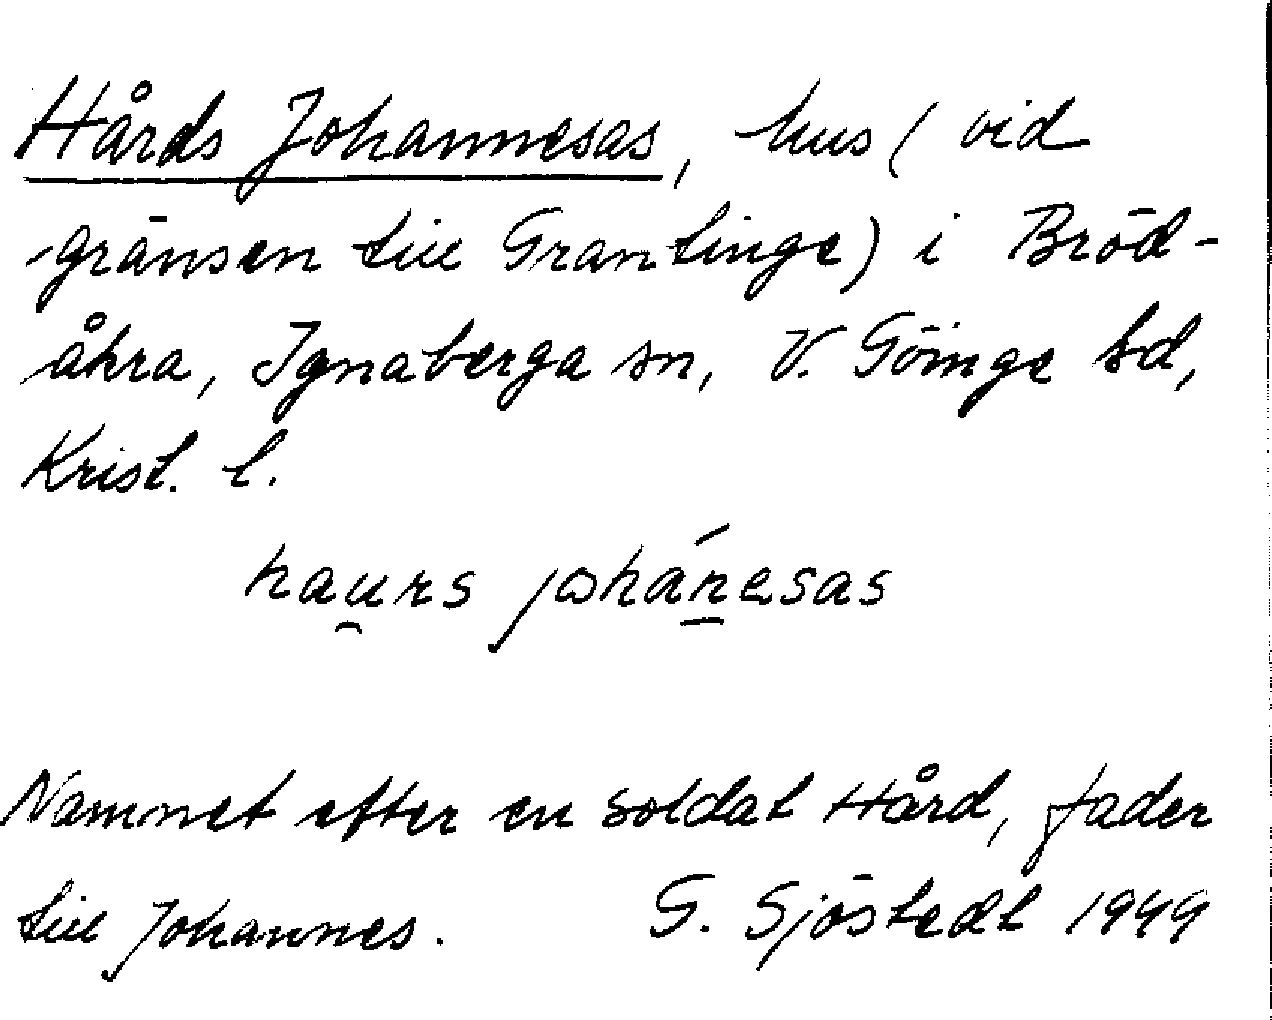 Hårds Johannesas, hus (vid
gränsen till Grantinge) i Bröd-
åkra, Ignaberga sn, V. Göinge hd,
Krist. l.
hau̯rs johán̲esas
Namnet efter en soldat Hård, fader
till Johannes. G. Sjöstedt 1949